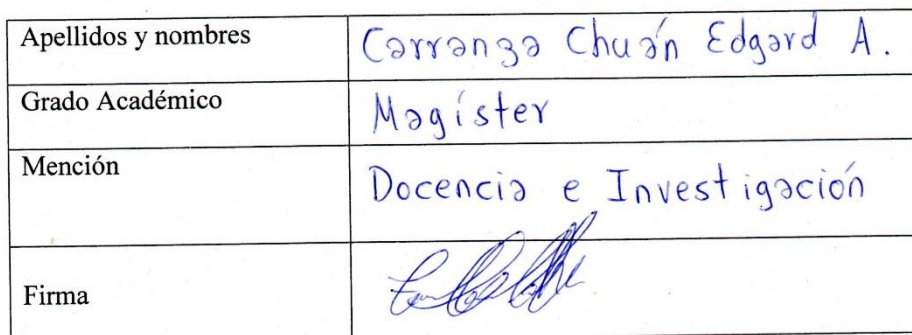 Apellidos y nombres
Carranza Chuán Edgard A.
Grado Académico
Magíster
Mención
Docencia e Investigación
Firma